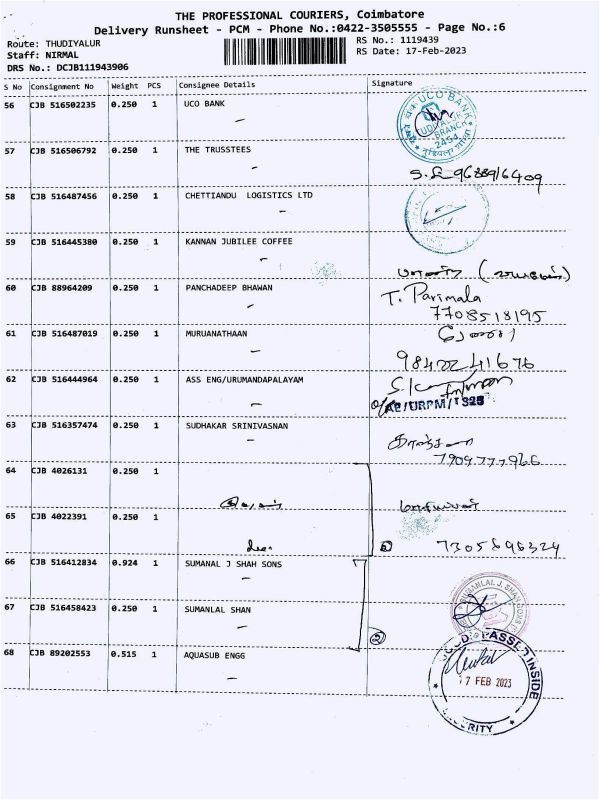 THE PROFESSIONAL COURIERS, Coimbatore
Delivery Runsheet - PCM - Phone No.:0422-3505555 - Page No.:6
Route: THUDIYALUR
RS No.: 1119439
Staff: NIRMAL
RS Date: 17-Feb-2023
DRS No.: DCJB111943906
S No Consignment No Weight PCS Consignee Details Signature
56 CJB 516502235 0.250 1 UCO BANK
UCO BANK
BRANCH
2454
57 CJB 516506792 0.250 1 THE TRUSSTEES
58 CJB 516487456 0.250 1 CHETTIANDU LOGISTICS LTD
59 CJB 516445380 0.250 1 KANNAN JUBILEE COFFEE
60 CJB 88964209 0.250 1 PANCHADEEP BHAWAN
T. Parimala
7708518195
61 CJB 516487019 0.250 1 MURUANATHAAN
62 CJB 516444964 0.250 1 ASS ENG/URUMANDAPALAYAM
63 CJB 516357474 0.250 1 SUDHAKAR SRINIVASNAN
64 CJB 4026131 0.250 1
65 CJB 4022391 0.250 1
66 CJB 516412834 0.924 1 SUMANAL J SHAH SONS
67 CJB 516458423 0.250 1 SUMANLAL SHAN
68 CJB 89202553 0.515 1 AQUASUB ENGG
PASSED INSIDE
17 FEB 2023
SECURITY